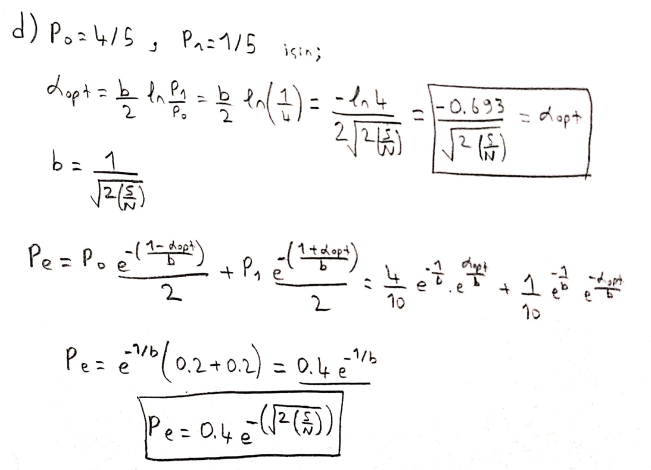 d) P₀=4/5 , P₁=1/5 için;
αopt = b/2 ln P₁/P₀ = b/2 ln(1/4) = -ln4 / 2√2(S/N) = -0.693 / √2(S/N) = αopt
b = 1 / √2(S/N)
Pe = P₀ e^-((1-αopt)/b) / 2 + P₁ e^-((1+αopt)/b) / 2 = 4/10 e^-1/b . e^αopt/b + 1/10 e^-1/b e^-αopt/b
Pe = e^-1/b (0.2+0.2) = 0.4 e^-1/b
Pe = 0.4 e^-(√2(S/N))